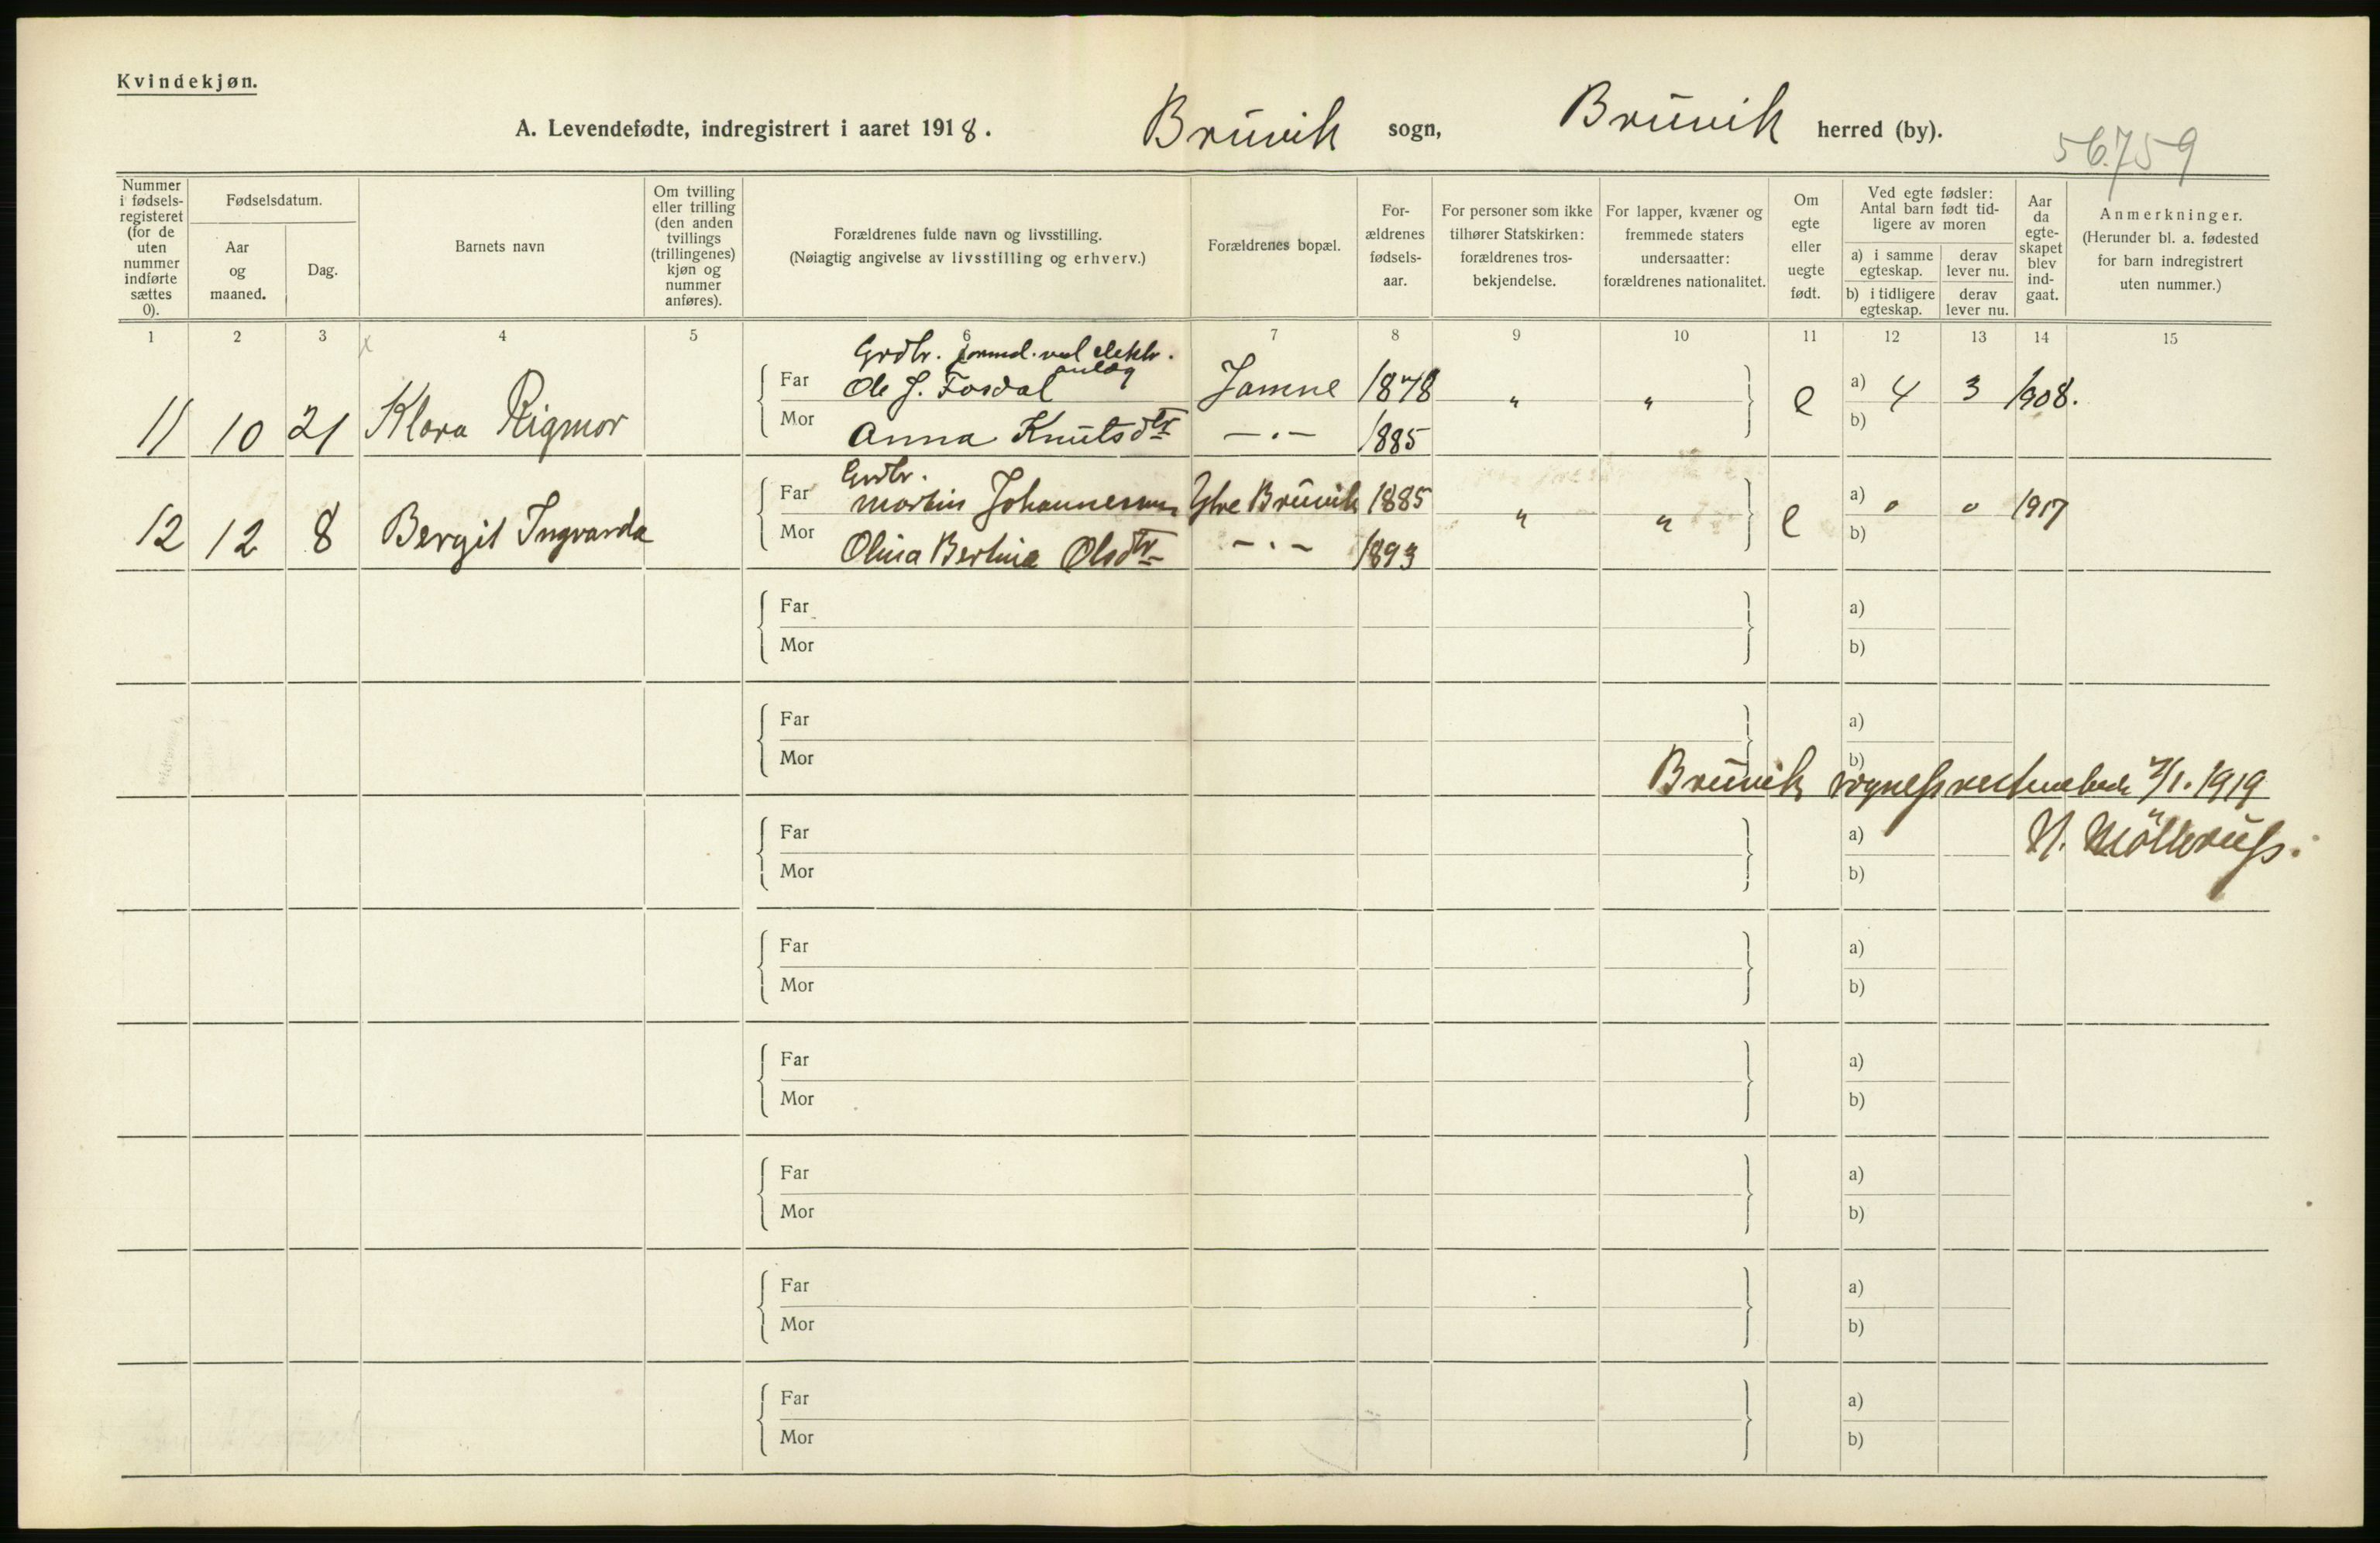 Kvindekjøn.
A. Levendefødte, indregistrert i aaret 1918. Brūvik sogn, Brūvik herred (by).
56.759
Nummer i fødsels-registeret (for de uten nummer indførte sættes 0).
Fødselsdatum.
Aar og maaned.
Dag.
Barnets navn
Om tvilling eller trilling (den anden tvillings (trillingenes) kjøn og nummer anføres).
Forældrenes fulde navn og livsstilling.
(Nøiagtig angivelse av livsstilling og erhverv.)
Forældrenes bopæl.
For-ældrenes fødsels-aar.
For personer som ikke tilhører Statskirken: forældrenes tros-bekjendelse.
For lapper, kvæner og fremmede staters undersaatter: forældrenes nationalitet.
Om egte eller uegte født.
Ved egte fødsler: Antal barn født tid-ligere av moren
a) i samme egteskap.
derav lever nu.
b) i tidligere egteskap.
derav lever nu.
Aar da egte-skapet blev ind-gaat.
Anmerkninger.
(Herunder bl. a. fødested for barn indregistrert uten nummer.)
1 2 3 4 5 6 7 8 9 10 11 12 13 14 15
Grdbr. formd. ved elektr. anlæg
11 10 21 Klara Rigmor Far Ole J. Fosdal Jamne 1878 " " e a) 4 3 1908.
Mor Anna Knūtsdtr — . — 1885 b)
Grdbr.
12 12 8 Bergit Ingvarda Far Martin Johannessen Ytre Brūvik 1885 " " e a) 0 0 1917
Mor Olina Bertina Olsdtr — . — 1893 b)
Far a)
Mor b)
Far a)
Mor b)
Brūvik sogneprestembede 7/1. 1919
Far a)
Mor b)
Far a)
Mor b)
Far a)
Mor b)
Far a)
Mor b)
Far a)
Mor b)
Far a)
Mor b)